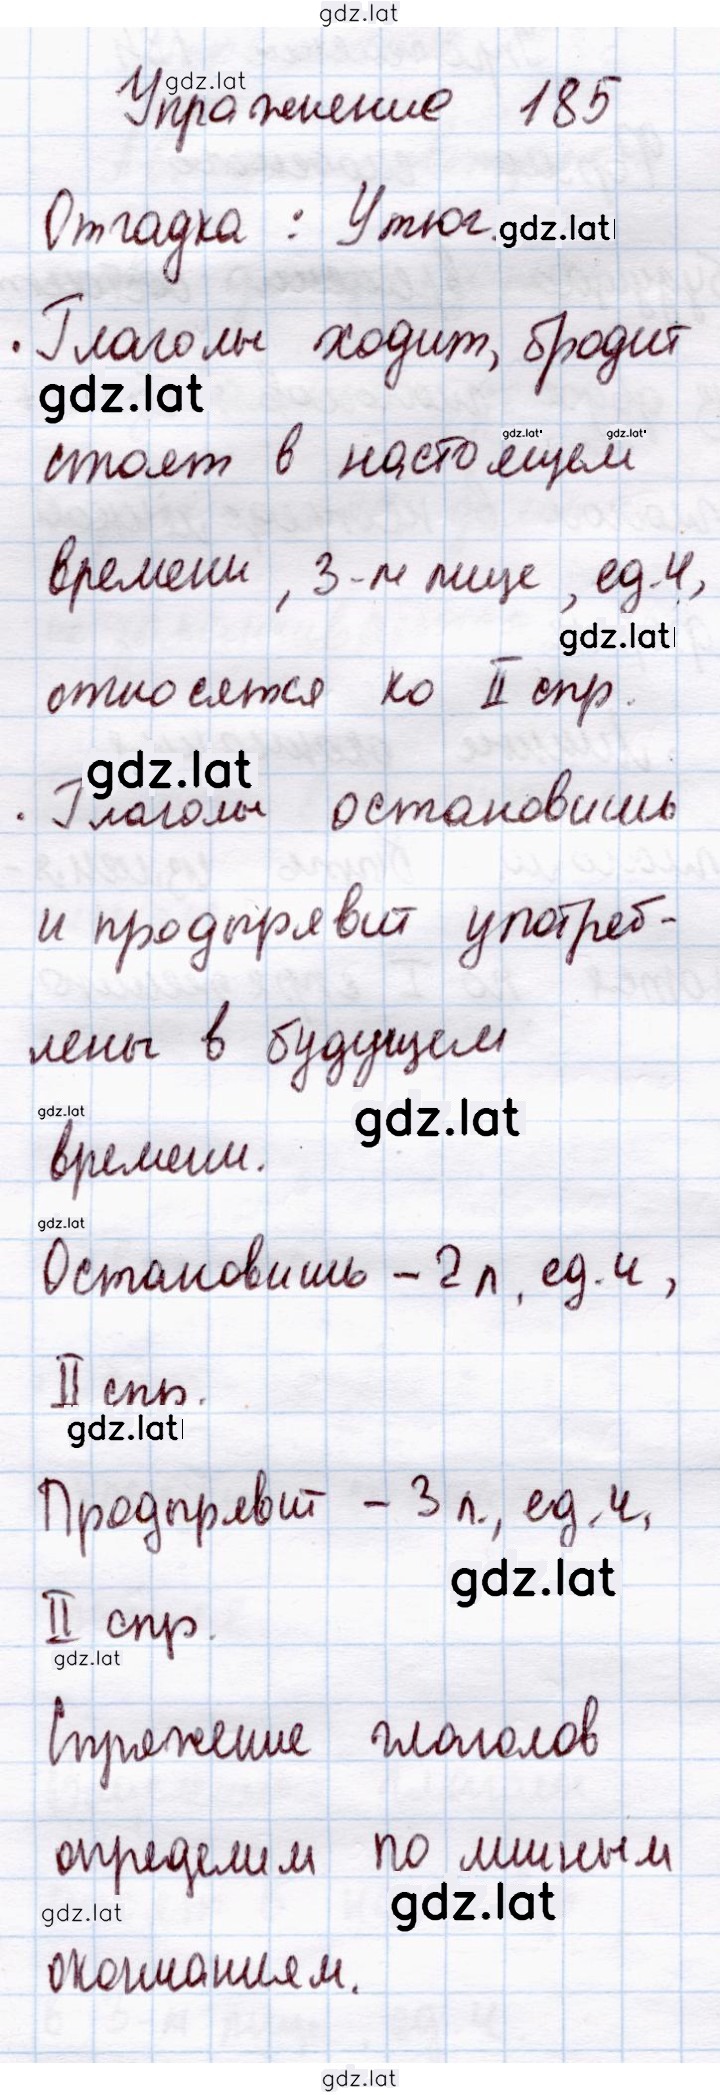 gdz.lat
gdz.lat
Упражнение 185
Отгадка: Утюг.
gdz.lat
· Глаголы ходит, бродит
gdz.lat
стоят в настоящем
gdz.lat gdz.lat
времени, 3-м лице, ед.ч,
gdz.lat
относятся ко II спр.
gdz.lat
· Глаголы остановишь
и продырявит употреб-
лены в будущем
gdz.lat gdz.lat
времени.
gdz.lat
Остановишь – 2 л, ед.ч,
II спр.
gdz.lat
Продырявит – 3 л., ед.ч,
gdz.lat
II спр.
gdz.lat
Спряжение глаголов
определим по личным
gdz.lat gdz.lat
окончаниям.
gdz.lat